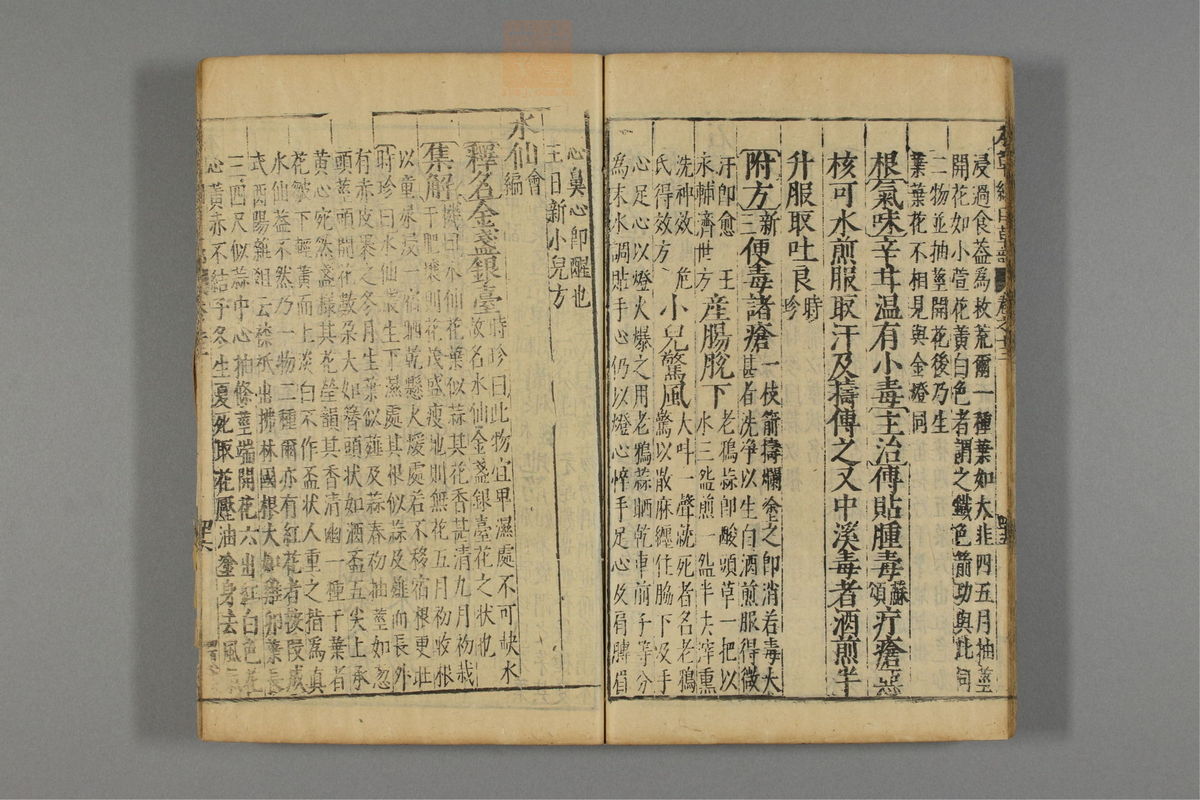 浸過食益為救荒爾一種葉如大韭四五月抽莖
開花如小萱花黃白色者謂之鐵色箭功與此同
二物並抽莖開花後乃生
葉葉花不相見與金燈同
根氣味辛甘温有小毒主治傅貼腫毒蘇頌疔瘡惡
核可水煎服取汗及擣傅之又中溪毒者酒煎半
升服取吐良時珍
附方新三便毒諸瘡一枝箭擣爛塗之即消若毒太甚者洗淨以生白酒煎服得微
汗即愈王永輔濟世方產腸脫下老鴉蒜即酸頭草一把以水三盌煎一盌半去滓熏
洗神效危氏得效方小兒驚風大叫一聲就死者名老鴉驚以散麻纏住脇下及手
心足心以燈火爆之用老鴉蒜晒乾車前子等分
為末水調貼手心仍以燈心焠手足心及肩膊眉
心鼻心即醒也
王日新小兒方
水仙會編
釋名金盞銀臺時珍曰此物宜卑濕處不可缺水故名水仙金盞銀臺花之狀也
集解機曰水仙花葉似蒜其花香甚清九月初栽于肥壤則花茂盛瘦地則無花五月初收根
以童尿浸一宿晒乾懸火煖處若不移宿根更旺
時珍曰水仙叢生下濕處其根似蒜及薤而長外
有赤皮裹之冬月生葉似薤及蒜春初抽莖如葱
頭莖頭開花數朶大如簪頭狀如酒盃五尖上承
黃心宛然盞樣其花瑩韻其香清幽一種千葉者
花皺下輕黃而上淡白不作盃狀人重之指為真
水仙葢不然乃一物二種爾亦有紅花者按段成
式酉陽雜俎云㮏祇出拂林國根大如雞卵葉長
三四尺似蒜中心抽條莖端開花六出紅白色花
心黃赤不結子冬生夏死取花壓油塗身去風氣